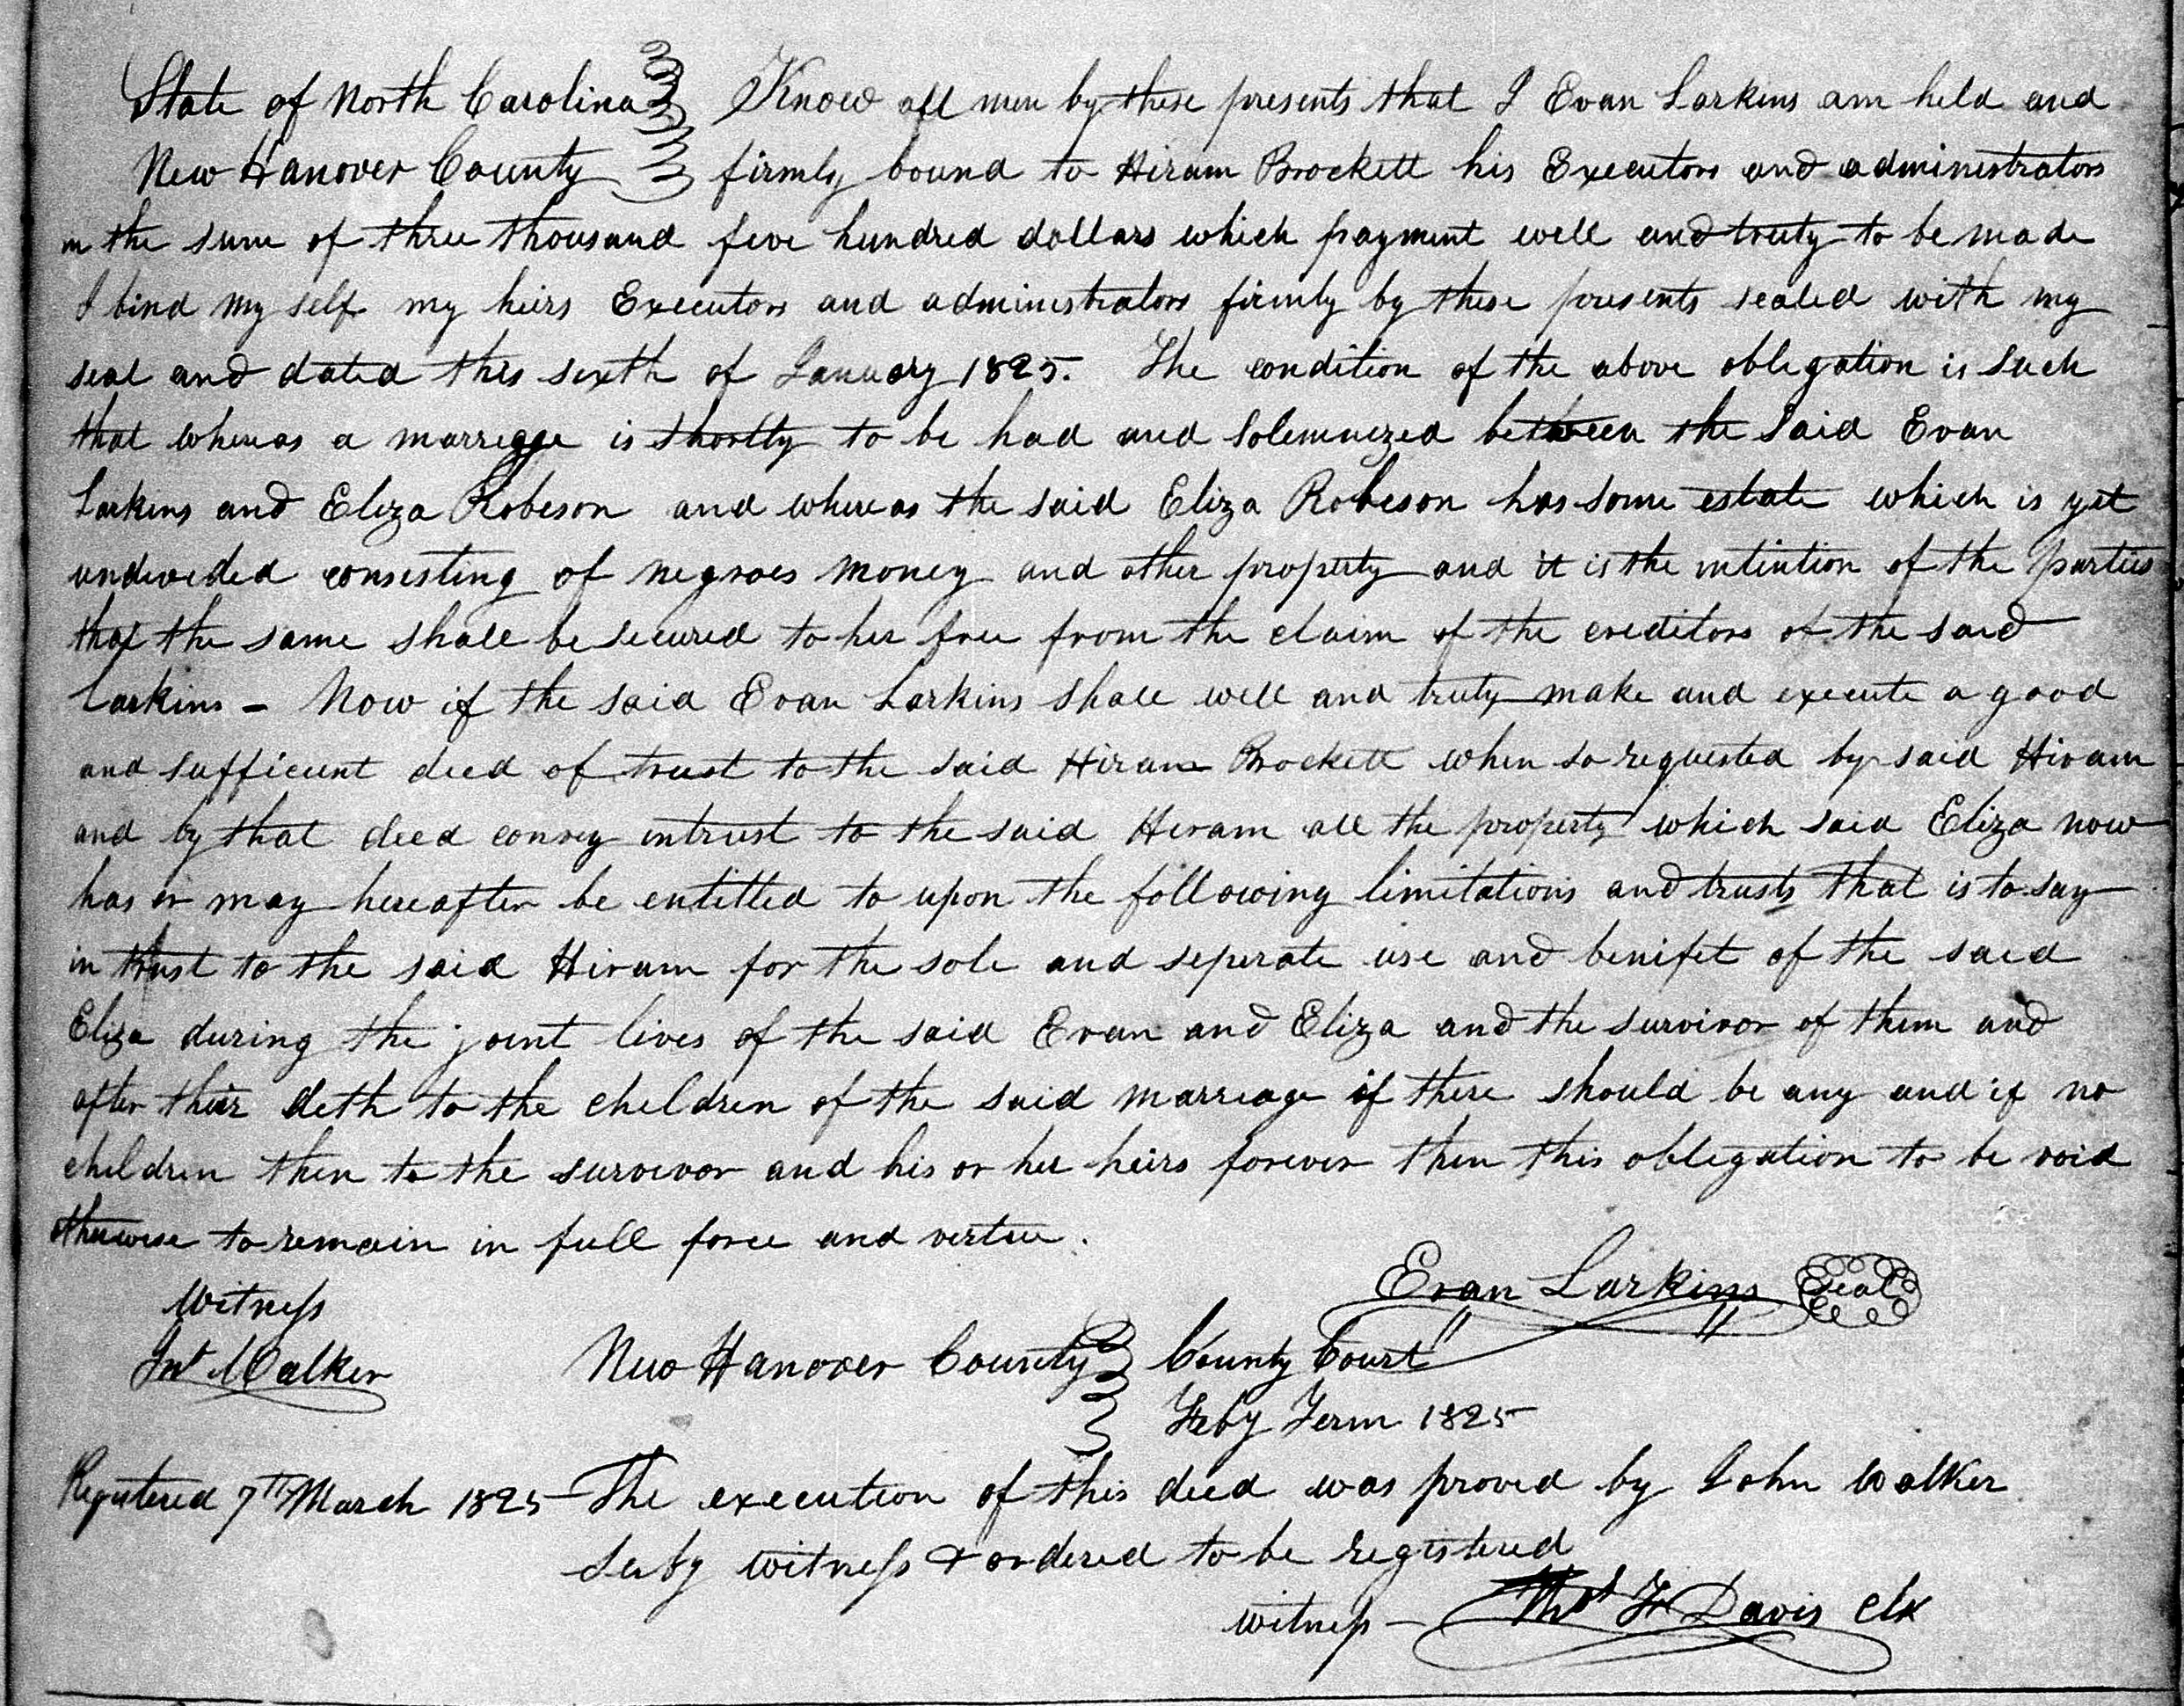 State of North Carolina Know all men by these presents that I Evan Larkins am held and
New Hanover County firmly bound to Hiram Brockett his Executors and administrators
in the sum of three thousand five hundred dollars which payment well and truly to be made
I bind my self my heirs Executors and administrators firmly by these presents sealed with my
seal and dated this sixth of January 1825. The condition of the above obligation is such
that whereas a marriage is shortly to be had and solemnized between the said Evan
Larkins and Eliza Robeson and whereas the said Eliza Robeson has some estate which is yet
undivided consisting of negroes money and other property and it is the intention of the parties
that the same shall be secured to her free from the claim of the creditors of the said
Larkins - Now if the said Evan Larkins shall well and truly make and execute a good
and sufficient deed of trust to the said Hiram Brockett when so requested by said Hiram
and by that deed convey intrust to the said Hiram all the property which said Eliza now
has or may hereafter be entitled to upon the following limitations and trusts that is to say
in trust to the said Hiram for the sole and seperate use and benifit of the said
Eliza during the joint lives of the said Evan and Eliza and the survivor of them and
after their deth to the children of the said marriage if there should be any and if no
children then to the survivor and his or her heirs forever then this obligation to be void
otherwise to remain in full force and virtue.
Evan Larkins Seal
Witness
Jno Walker
New Hanover County County Court
Feby Term 1825
Registered 7th March 1825 The execution of this deed was proved by John Walker
witness & ordered to be registered
witness - Thos F Davis clk